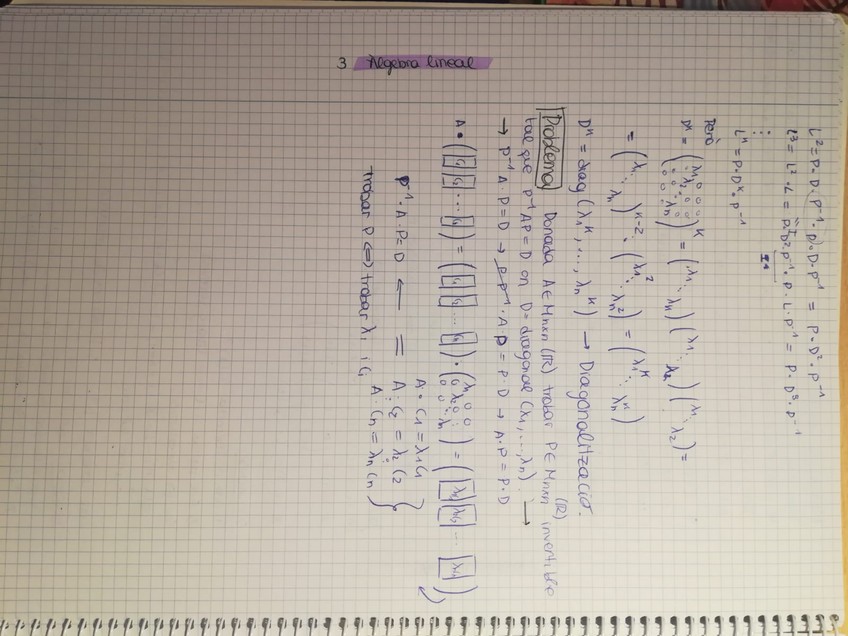 3 Àlgebra lineal
L² = P·D·(P⁻¹·P)·D·P⁻¹ = P·D²·P⁻¹
L³ = L²·L = P·D²·P⁻¹·P·L·P⁻¹ = P·D³·P⁻¹
⋮
Lᴷ = P·Dᴷ·P⁻¹
Però
Dᴷ = (λ₁ 0 0 0 λ₂ 0 0 0 λₙ)ᴷ = (λ₁ ⋱ λₙ)(λ₁ ⋱ λ₂)(λ₁ ⋱ λ₂) =
= (λ₁ ⋱ λₙ)ᴷ⁻²·(λ₁² ⋱ λₙ²) = (λ₁ᴷ ⋱ λₙᴷ)
Dᴷ = diag(λ₁ᴷ, ..., λₙᴷ) → Diagonalització.
Problema Donada A∈Mₙₓₙ(ℝ) trobar P∈Mₙₓₙ(ℝ) invertible
tal que P⁻¹AP=D on D=diagonal(λ₁,...,λₙ). →
→ P⁻¹A·P=D → P·P⁻¹·A·P = P·D → A·P = P·D
A·(C₁ C₂ ... Cₙ) = (C₁ C₂ ... Cₙ)·(λ₁ 0 0 0 λ₂ 0 0 λₙ) = (λC₁ λC₂ ... λCₙ)
A·C₁ = λ₁C₁
P⁻¹·A·P=D ← = A·C₂ = λ₂C₂
⋮
A·Cₙ = λₙCₙ
trobar P ⇔ trobar λᵢ i Cᵢ